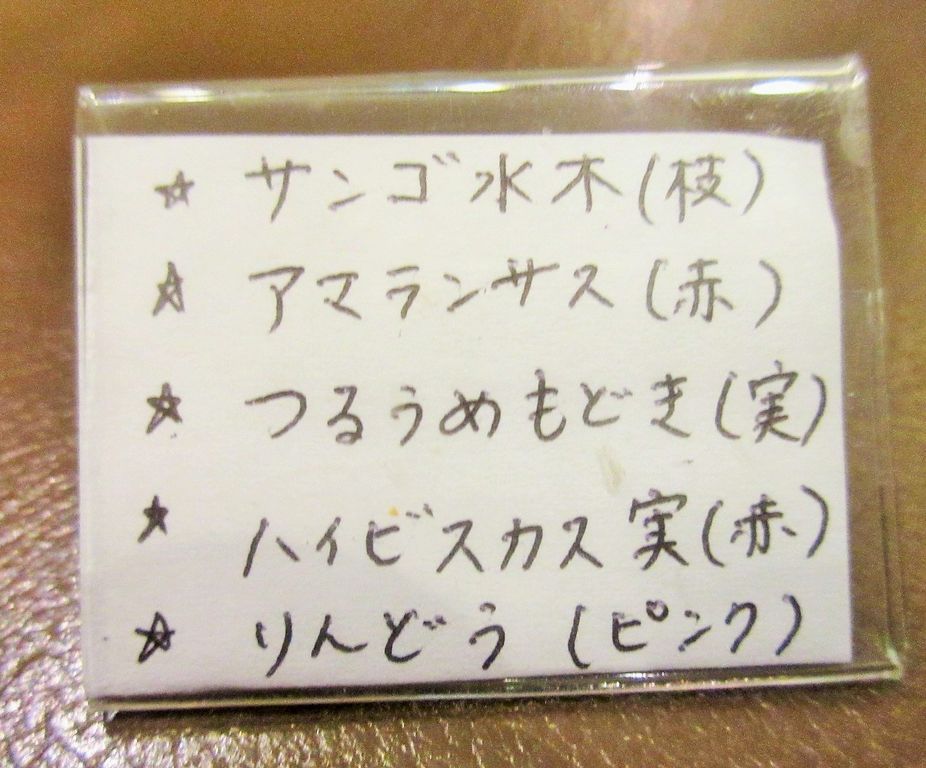 ☆ サンゴ水木(枝)
☆ アマランサス(赤)
☆ つるうめもどき(実)
★ ハイビスカス実(赤)
☆ りんどう(ピンク)